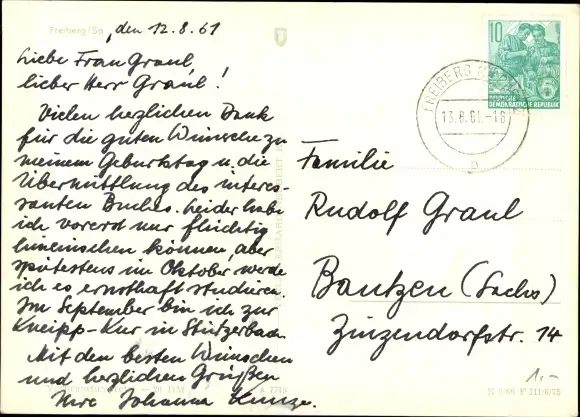 Freiberg/Sa., den 12.8.61
Liebe Frau Graul,
lieber Herr Graul!
Vielen herzlichen Dank
für die guten Wünsche zu
meinem Geburtstag u. die
Übermittlung des interes-
santen Buches. Leider habe
ich vorerst nur flüchtig
hineinsehen können, aber
spätestens im Oktober werde
ich es ernsthaft studieren.
Im September bin ich zur
Kneipp-Kur in Stützerbach.
Mit den besten Wünschen
und herzlichen Grüßen
Ihre Johanna Kunze.
10
DEUTSCHE
DEMOKRATISCHE REPUBLIK
FREIBERG
13.8.61.-18
Familie
Rudolf Graul
Bautzen (Sachs)
Zinzendorfstr. 14
1,-
A 7715
III/6/75